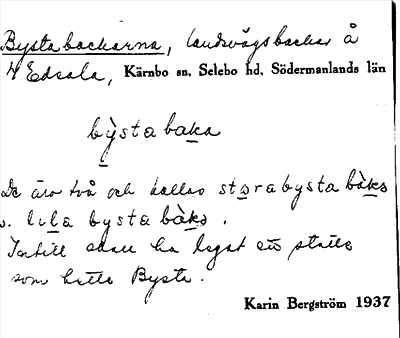 Bysta backarna, landsvägsbackar å
H Edsala, Kärnbo sn, Selebo hd, Södermanlands län
bỳsta baka
De äro två och kallas stora bysta bàks
o. lila bysta bàks.
Intill skall ha legat ett ställe
som hette Bysta.
Karin Bergström 1937